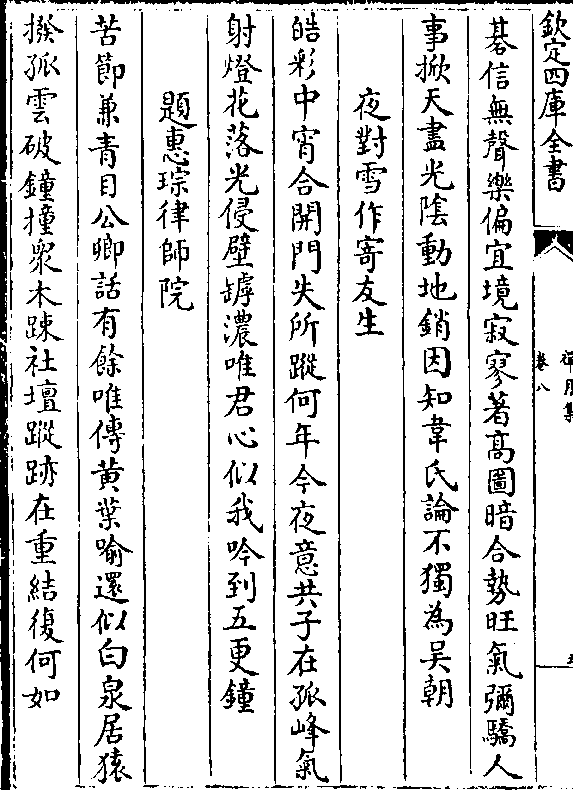 欽定四庫全書
禪月集
卷八
棊信無聲樂偏宜境寂寥著髙圖暗合勢旺氣彌驕人
事掀天盡光陰動地銷因知韋氏論不獨為吳朝
夜對雪作寄友生
皓彩中宵合開門失所蹤何年今夜意共子在孤峰氣
射燈花落光侵壁罅濃唯君心似我吟到五更鐘
題惠琮律師院
苦節兼青目公卿話有餘唯傳黄葉喻還似白泉居猿
撥孤雲破鐘撞衆木踈社壇蹤跡在重結復何如